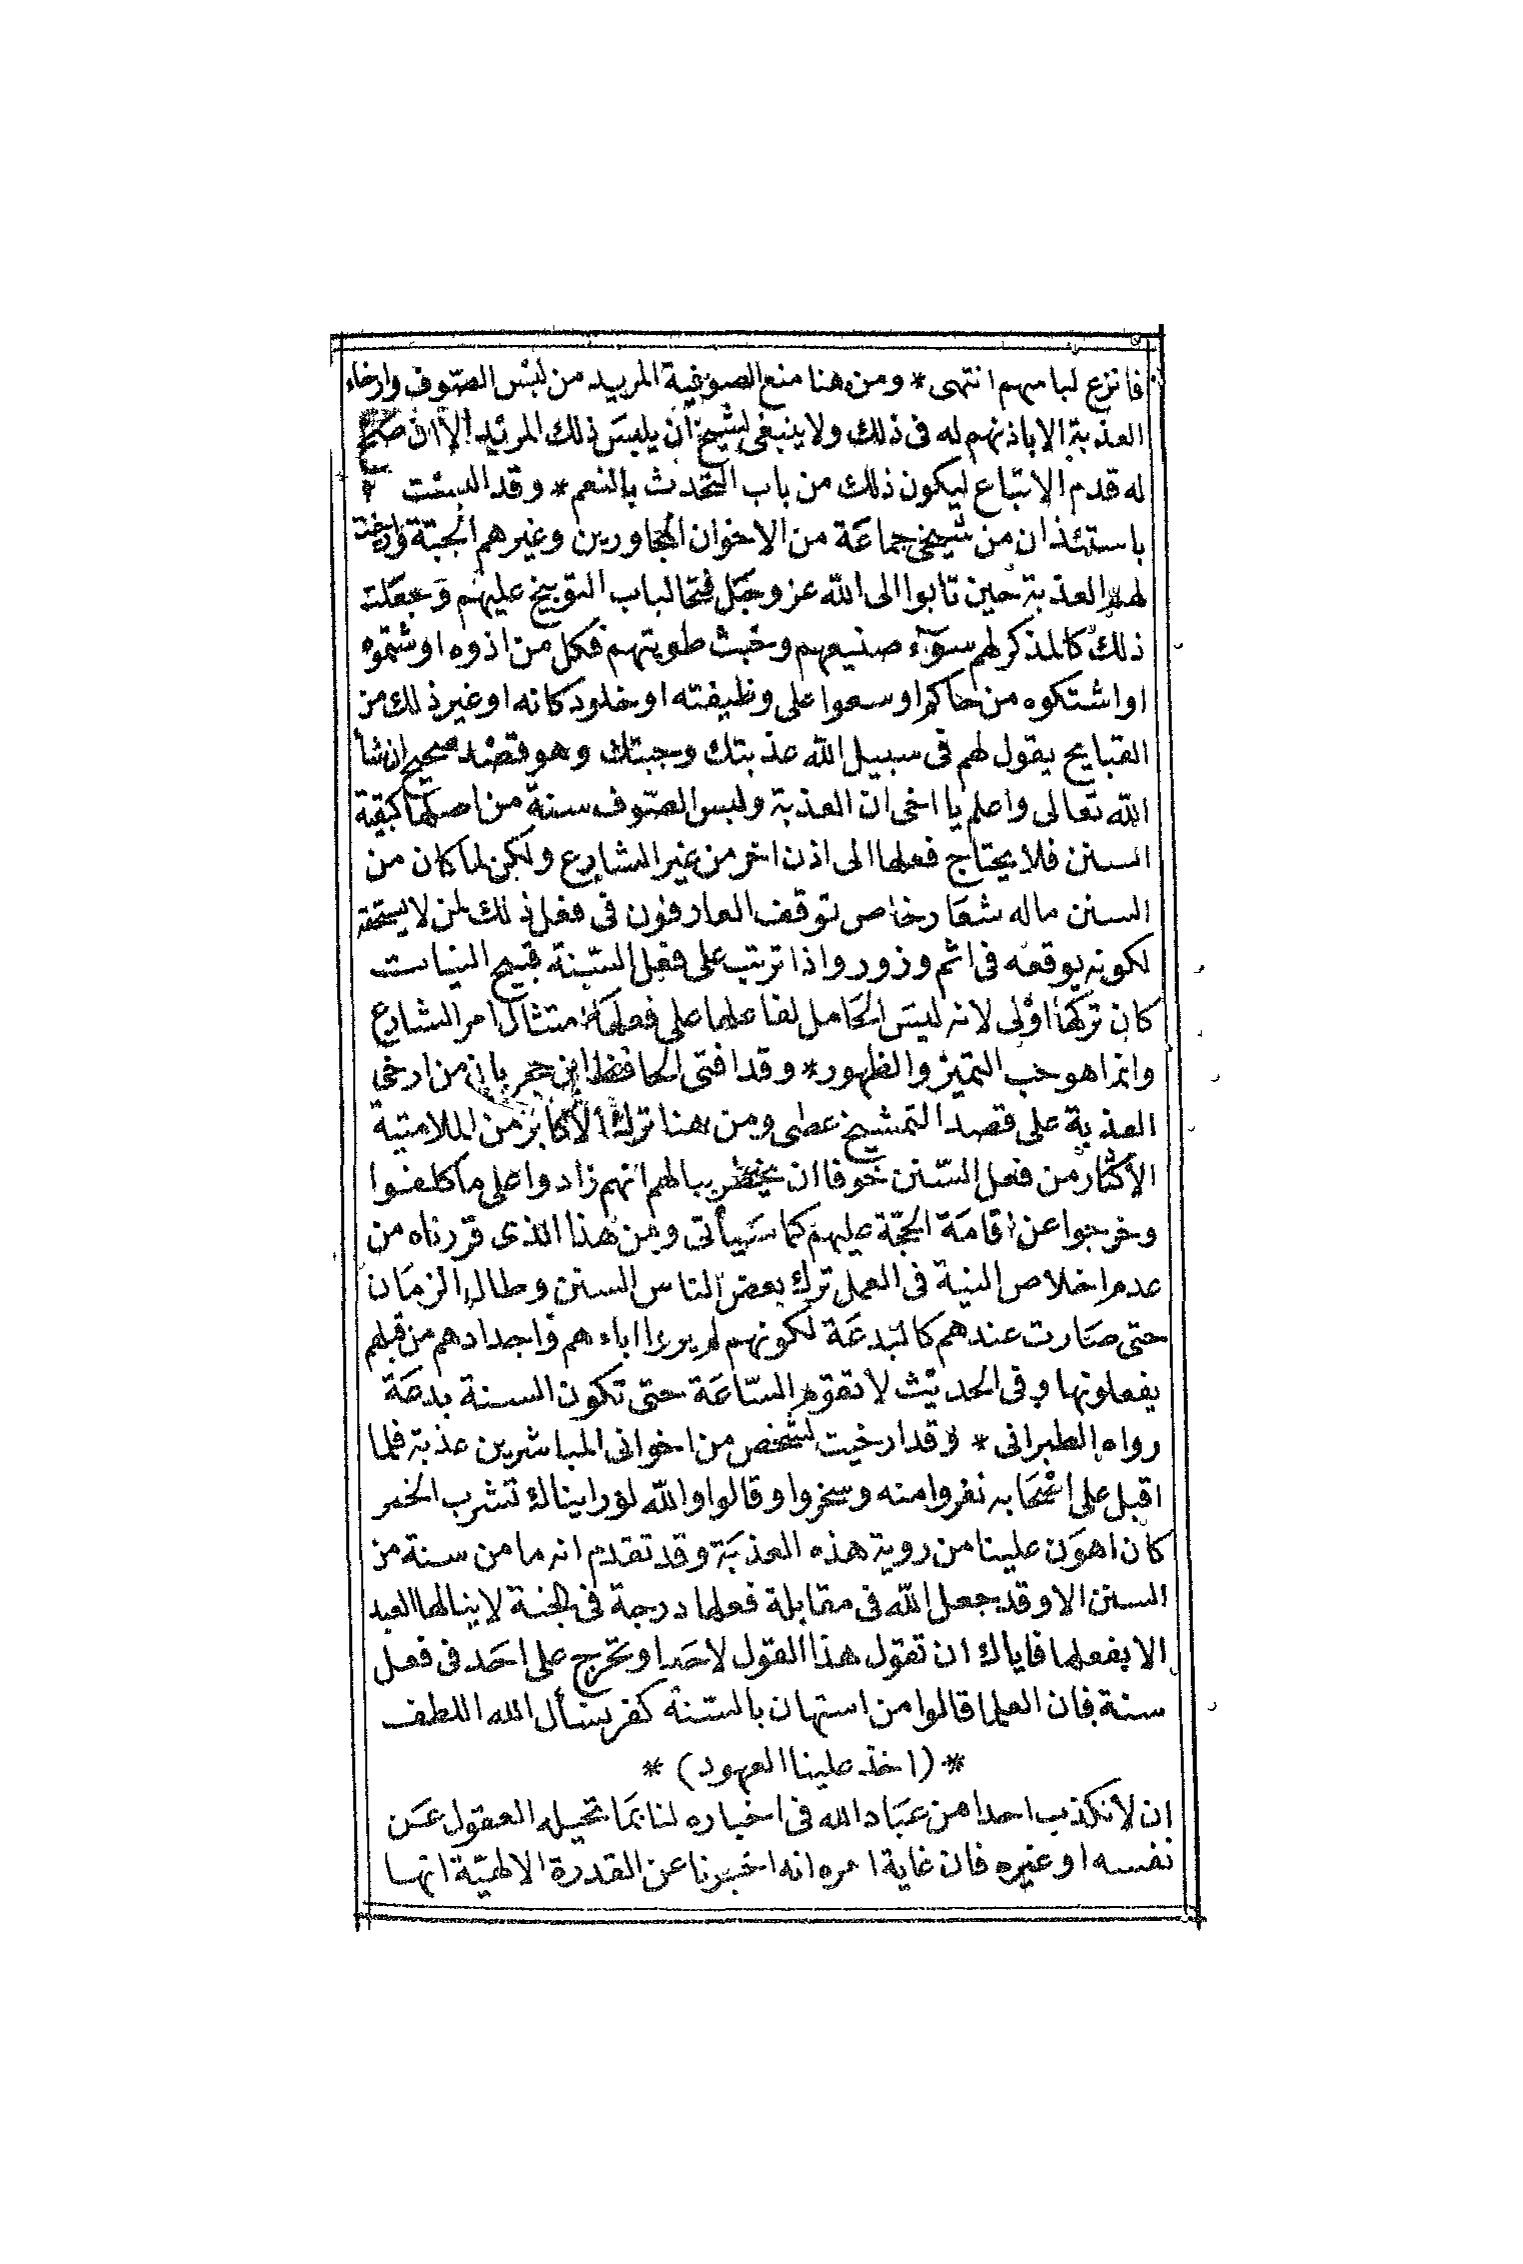 فانزع لباسهم انتهى * ومن هنا منع الصوفية المريد من لبس الصّوف وارخاء
العذبة الا باذنهم له فى ذلك ولا ينبغى لشيخ ان يلبس ذلك المريد الا ان صح
له قدم الاتباع ليكون ذلك من باب التحدث بالنعم * وقد البست
باستئذان من شيخى جماعة من الاخوان المجاورين وغيرهم الجبة وارخيت
لهم العذبة حين تابوا الى الله عز وجل فتحا لباب التوبيخ عليهم وجعلت
ذلك كالمذكر لهم سوٓء صنيعهم وخبث طويتهم فكل من اذوه او شتموه
او اشتكوه من حاكم او سعوا على وظيفته او خلو دكانه او غير ذلك من
القبايح يقول لهم فى سبيل الله عذبتك وجبتك وهو قصد صحيح ان شأ
الله تعالى واعلم يا اخى ان العذبة ولبس الصّوف سنة من اصلها كبقية
السنن فلا يحتاج فعلها الى اذن اخر من غير الشارع ولكن لما كان من
السنن ماله شعار خاص توقف العارفون فى فعل ذلك لمن لا يستحقه
لكونه يوقعه فى اثم وزور واذا ترتب على فعل السّنة قبيح النيات
كان تركها اوْلى لانه ليس الحامل لفاعلها على فعلها امتثال امر الشارع
وانما هو حب التميز والظهور * وقد افتى الحافظ ابن حجر بان من ارخى
العذبة على قصد التمشيخ عصى ومن هنا ترك الاكابر من الملامتية
الاكثار من فعل السّنن خوفا ان يخطر ببالهم انهم زادوا على ما كلفوا
وخرجوا عن اقامة الحجّة عليهم كما سيأتى ومن هذا الذى قررناه من
عدم اخلاص النية فى العمل ترك بعض الناس السنن وطال الزمان
حتى صارت عندهم كالبدعة لكونهم لم يروا اباءهم واجدادهم من قبلهم
يفعلونها وفى الحديث لا تقوم السّاعة حتى تكون السنة بدعة
رواه الطبرانى * وقد ارخيت لشخص من اخوانى المباشرين عذبة فلما
اقبل على اصحابه نفروا منه وسخروا وقالوا والله لو رايناك تشرب الخمر
كان اهون علينا من روية هذه العذبة وقد تقدم انه ما من سنة من
السنن الا وقد جعل الله فى مقابلة فعلها درجة فى الجنة لا ينالها العبد
الا بفعلها فاياك ان تقول هذا القول لاحد او تحرج على احد فى فعل
سنة فان العلما قالوا من استهان بالسّنة كفر نسأل الله اللطف
* (اخذ علينا العهود) *
ان لا نكذب احدا من عباد الله فى اخباره لنا بما تحيله العقول عن
نفسه او غيره فان غاية امره انه اخبرنا عن القدرة الالهيّة انها